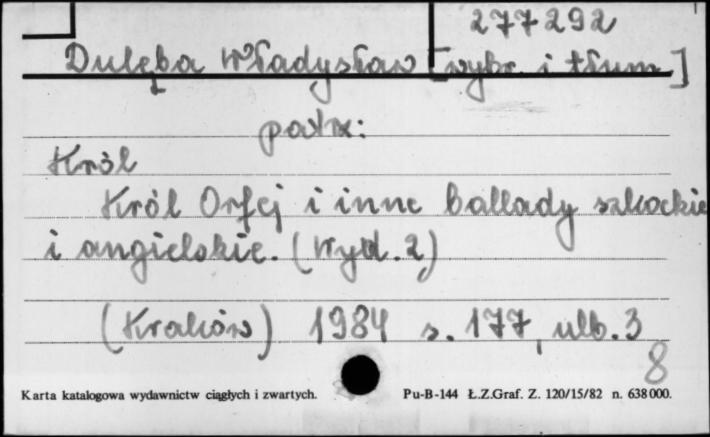 277292
Dulęba Władysław [wybr. i tłum.]
patrz:
Król
Król Orfej i inne ballady szkockie
i angielskie. (Wyd. 2)
(Kraków) 1984 s. 177, ulb. 3
8
Karta katalogowa wydawnictw ciągłych i zwartych. Pu-B-144 Ł.Z.Graf. Z. 120/15/82 n. 638000.